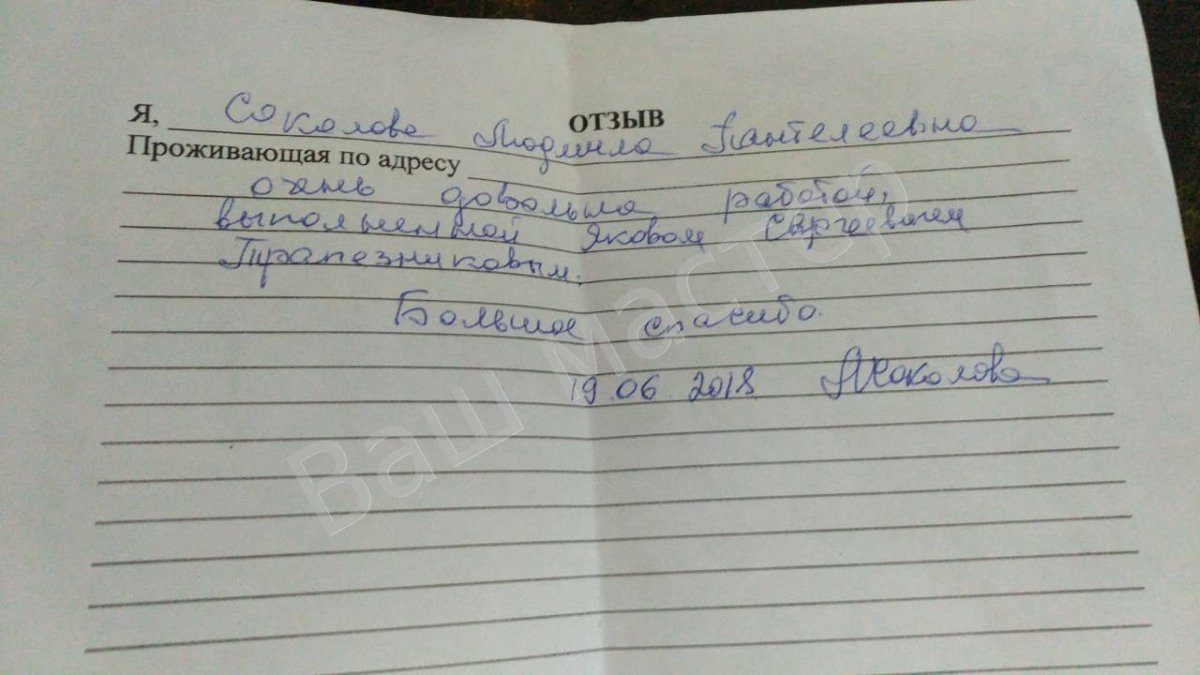 ОТЗЫВ
Я, Соколова Людмила Пантелеевна
Проживающая по адресу
очень довольна работой,
выполненной Яковом Сергеевичем
Трапезниковым.
Большое спасибо.
19.06.2018 Соколова
Ваш Мастер